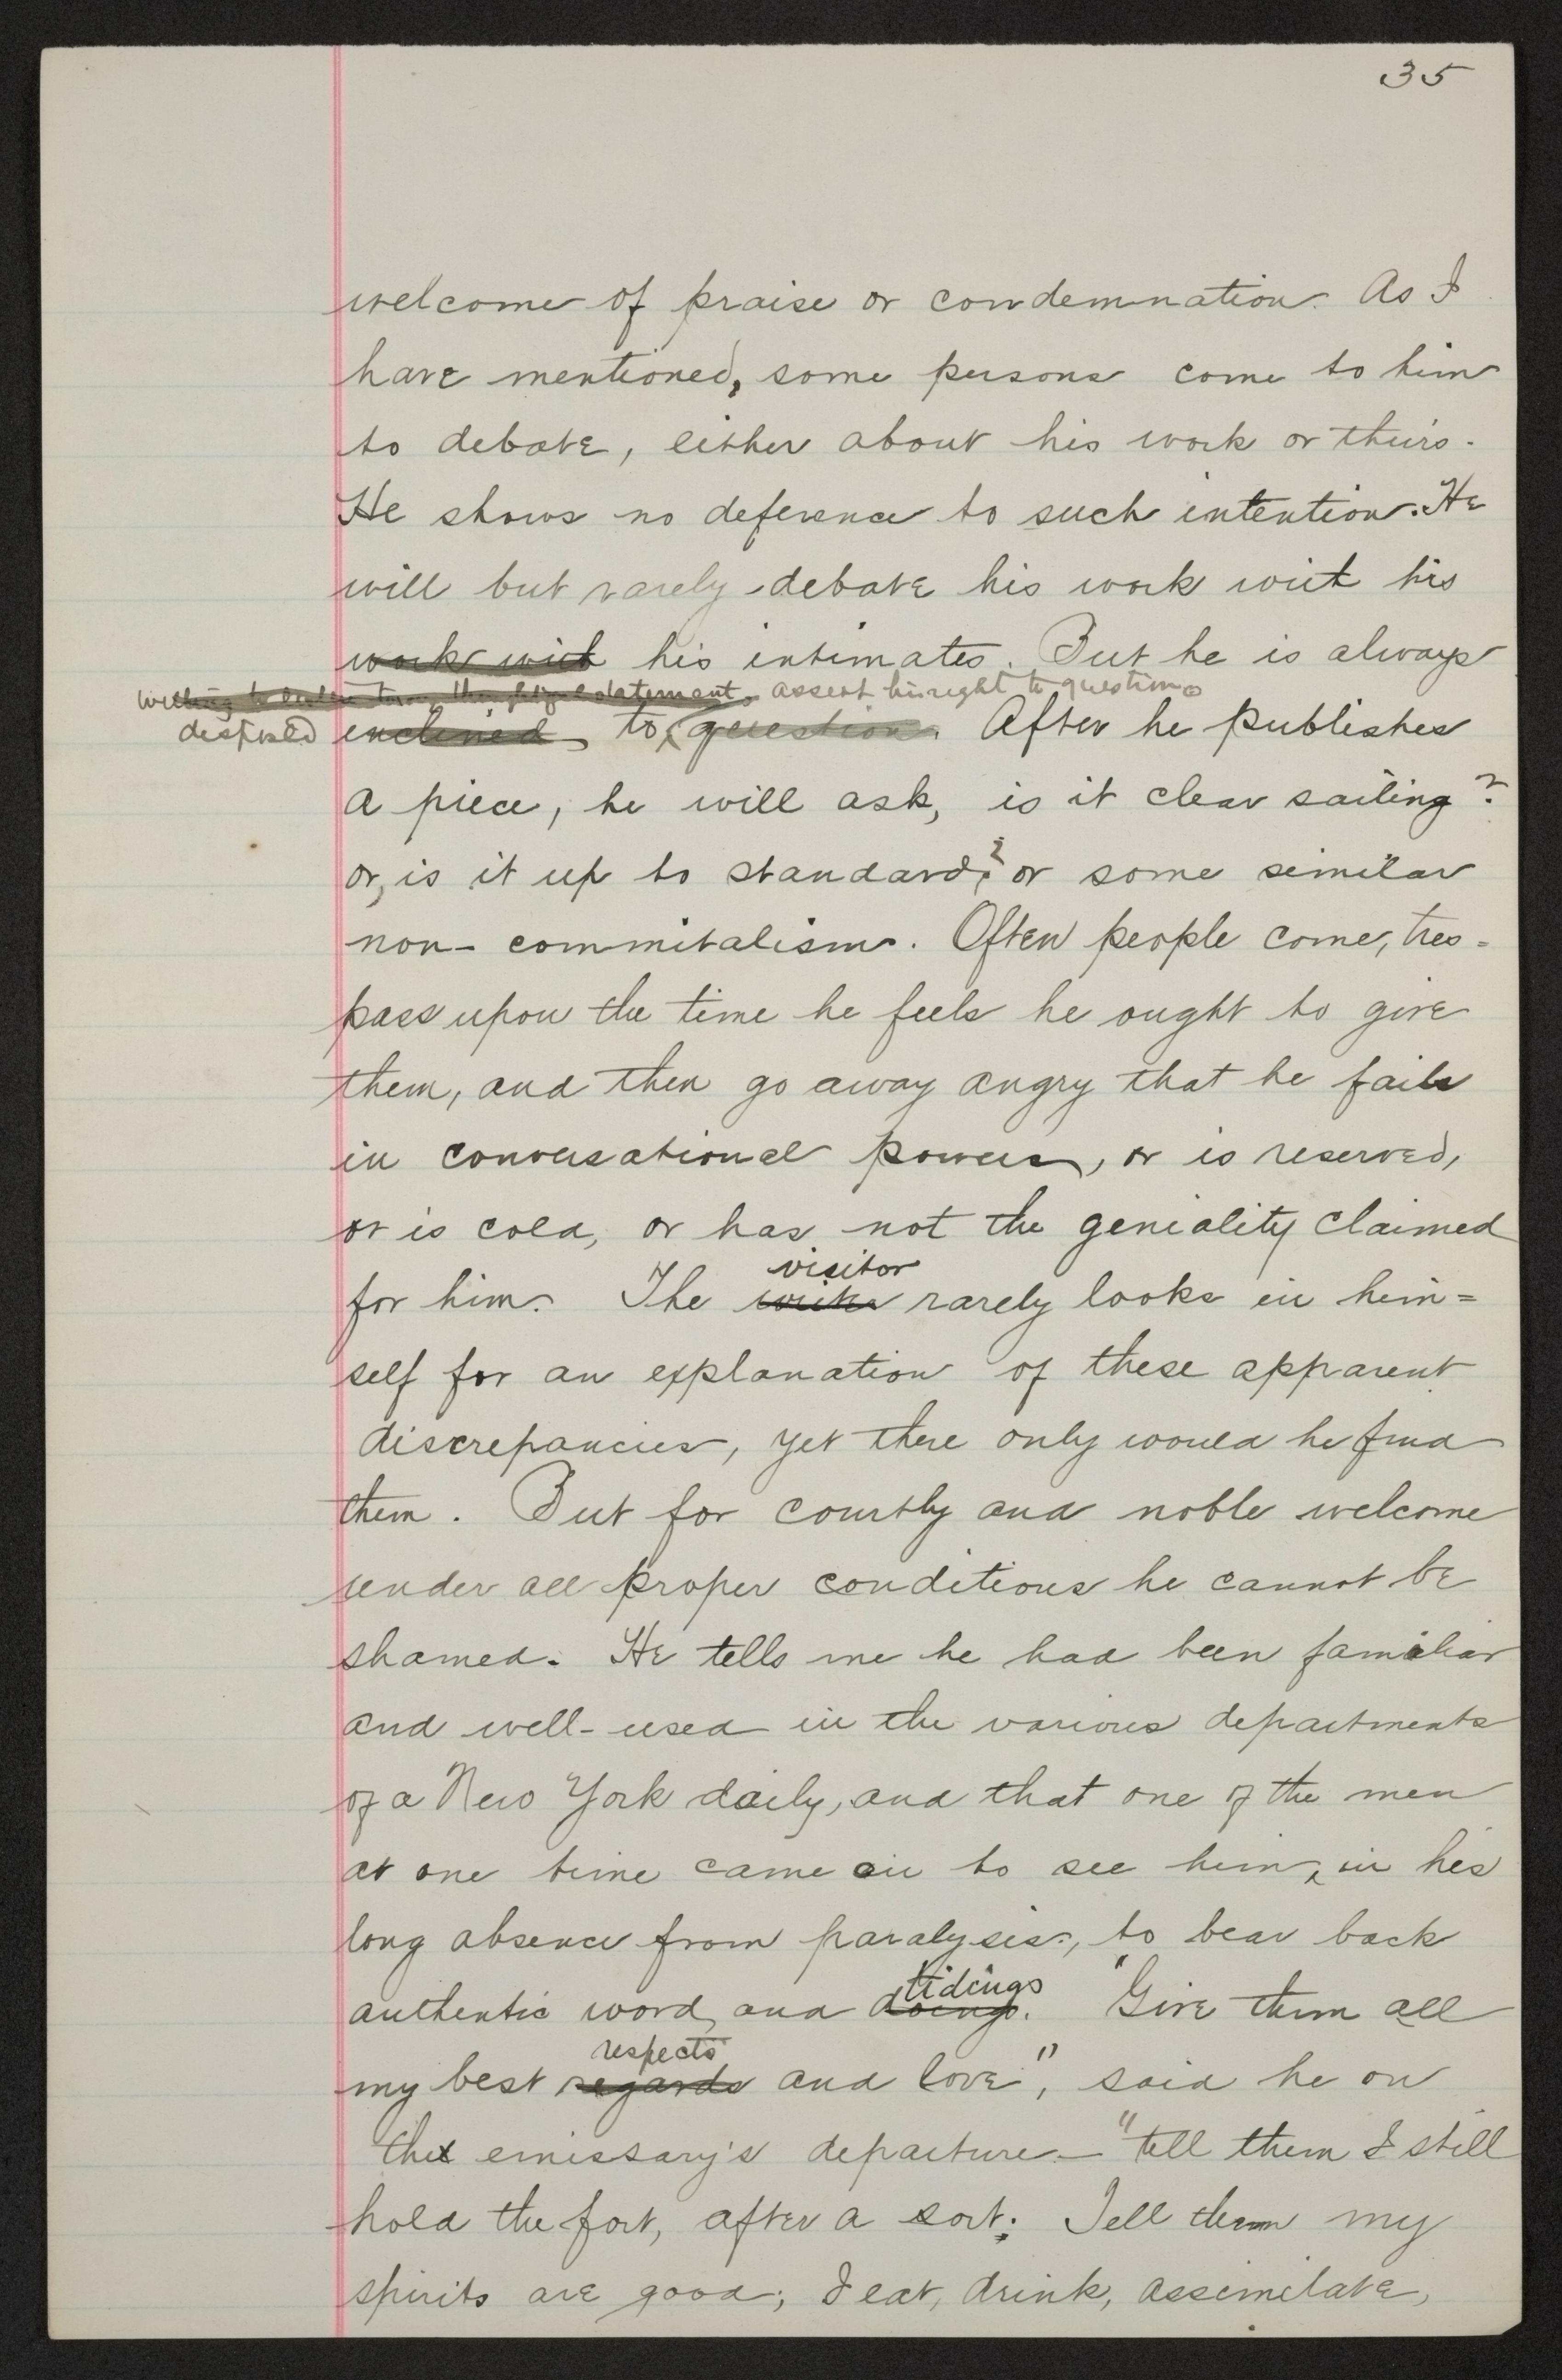 35
welcome of praise or condemnation. As I
have mentioned, some persons come to him
to debate, either about his work or theirs.
He shows no deference to such intention. He
will but rarely debate his work with his
work with his intimates. But he is always
willing to statement. assert his right to question.
disposed inclined to question. After he publishes
a piece, he will ask, is it clear sailing?
or, is it up to standard? or some similar
non-commitalism. Often people come, tres=
pass upon the time he feels he ought to give
them, and then go away angry that he fails
in conversational powers, or is reserved,
or is cold, or has not the geniality claimed
visitor
for him. The writer rarely looks in him=
self for an explanation of these apparent
discrepancies, yet there only would he find
them. But for courtly and noble welcome
under all proper conditions he cannot be
shamed. He tells me he had been familiar
and well-used in the various departments
of a New York daily, and that one of the men
at one time came on to see him, in his
long absence from paralysis, to bear back
tidings
authentic word and doings. "Give them all
respects
my best regards and love", said he on
the emissary's departure— "tell them I still
hold the fort, after a sort: Tell them my
spirits are good; I eat, drink, assimilate,